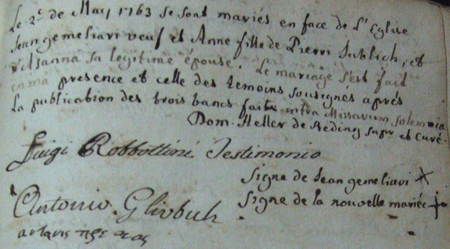 Le 2e de May 1763 se sont mariés en face de L'Eglise
Jean gemeliari veuf et Anne fille de Pierri Jublich, et
d'Usanna sa legitime épouse. Le mariage s'est fait
en ma presence et celle des temoins sousignés après
la publication des trois bancs faite intra Missarum solemnia
Dom. Heller de Reding supr et Curé
Luigi Robbottini Testimonio
signe de Jean gemeliari X
Antonio Glivbuh
signe de la nouvelle mariée +